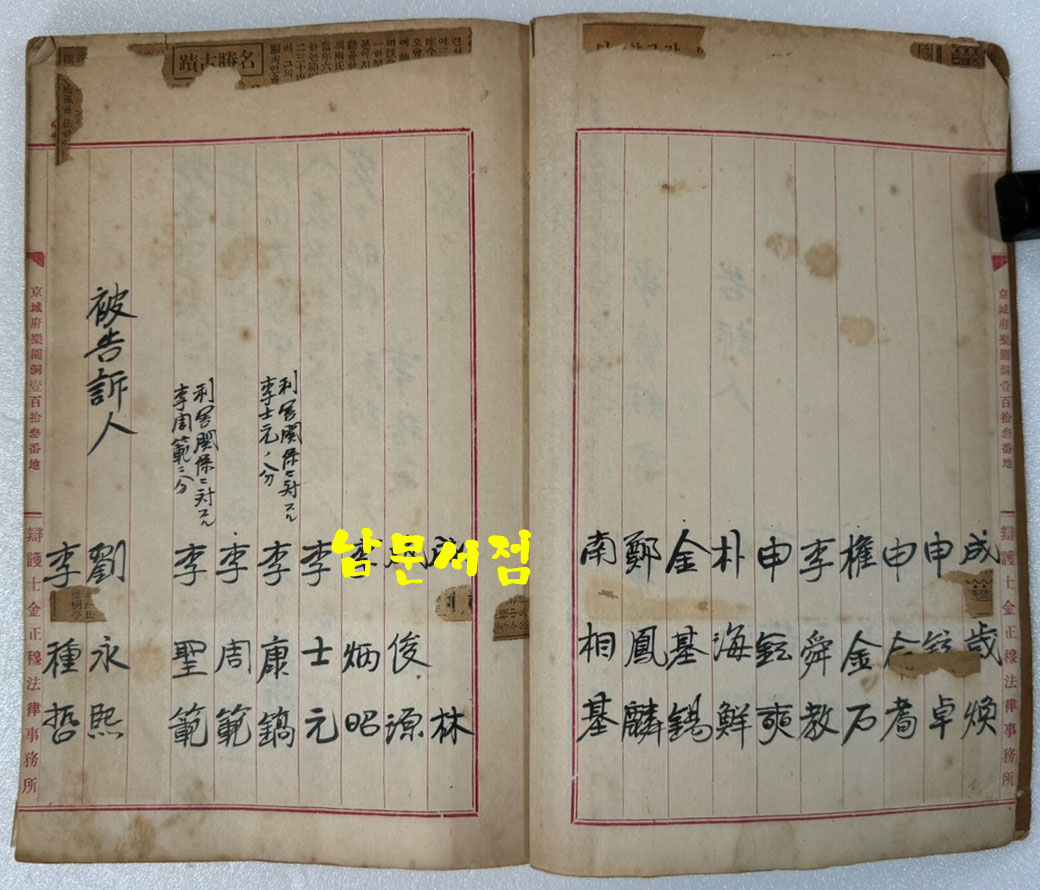 國
成歲煥
申鉉卓
申
權金石
李舜教
申鉉奭
朴海鮮
金基錫
鄭鳳麟
南相基
林
俊源
李炳昭
李士元
利害関係ニ対スル
李士元ノ分
李康鎬
李周範
利害関係ニ対スル
李周範ニ分
李聖範
被告訴人
劉永熙
李種哲
남문서점
名勝古蹟
京城府樂園洞壹百拾參番地
辯護士金正穆法律事務所
京城府樂園洞壹百拾參番地
辯護士金正穆法律事務所